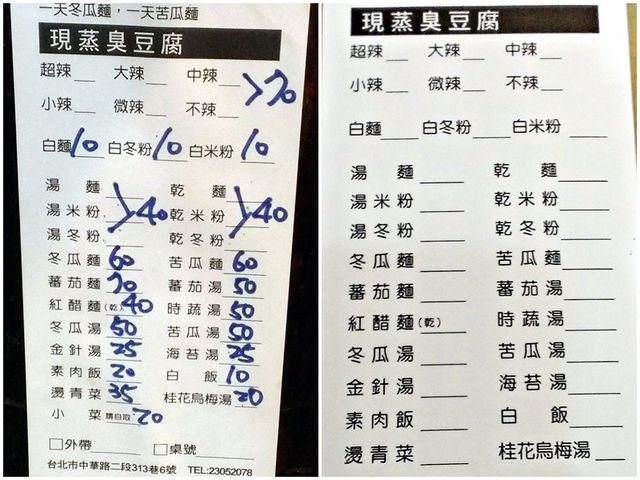 一天冬瓜麵，一天苦瓜麵
現蒸臭豆腐
超辣 大辣 中辣
小辣 微辣 不辣 >70
白麵 10 白冬粉 10 白米粉 10
湯麵 乾麵
湯米粉 >40 乾米粉 >40
湯冬粉 乾冬粉
冬瓜麵 60 苦瓜麵 60
蕃茄麵 70 蕃茄湯 50
紅醋麵(乾) 40 時蔬湯 50
冬瓜湯 50 苦瓜湯 50
金針湯 25 海苔湯 25
素肉飯 20 白飯 10
燙青菜 35 桂花烏梅湯 20
小菜 請自取 20
□外帶 □桌號
台北市中華路二段313巷6號 TEL:23052078
現蒸臭豆腐
超辣 大辣 中辣
小辣 微辣 不辣
白麵 白冬粉 白米粉
湯麵 乾麵
湯米粉 乾米粉
湯冬粉 乾冬粉
冬瓜麵 苦瓜麵
蕃茄麵 蕃茄湯
紅醋麵(乾) 時蔬湯
冬瓜湯 苦瓜湯
金針湯 海苔湯
素肉飯 白飯
燙青菜 桂花烏梅湯